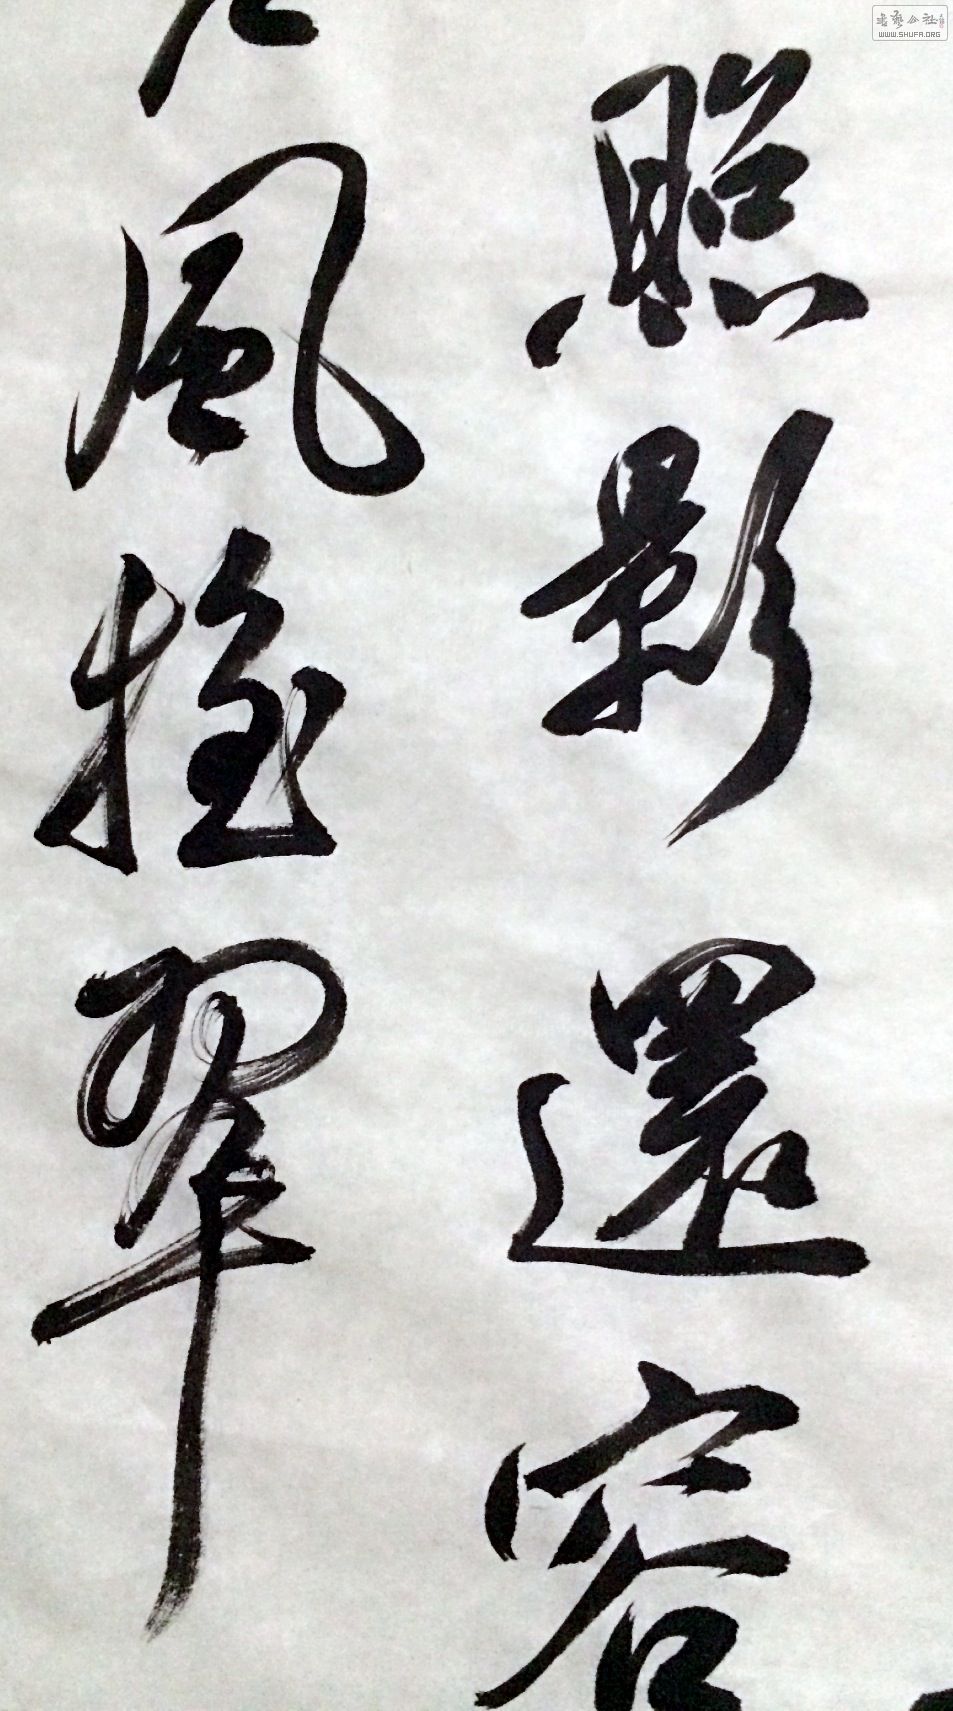 照影還容
風搖翠
書藝公社
WWW.SHUFA.ORG